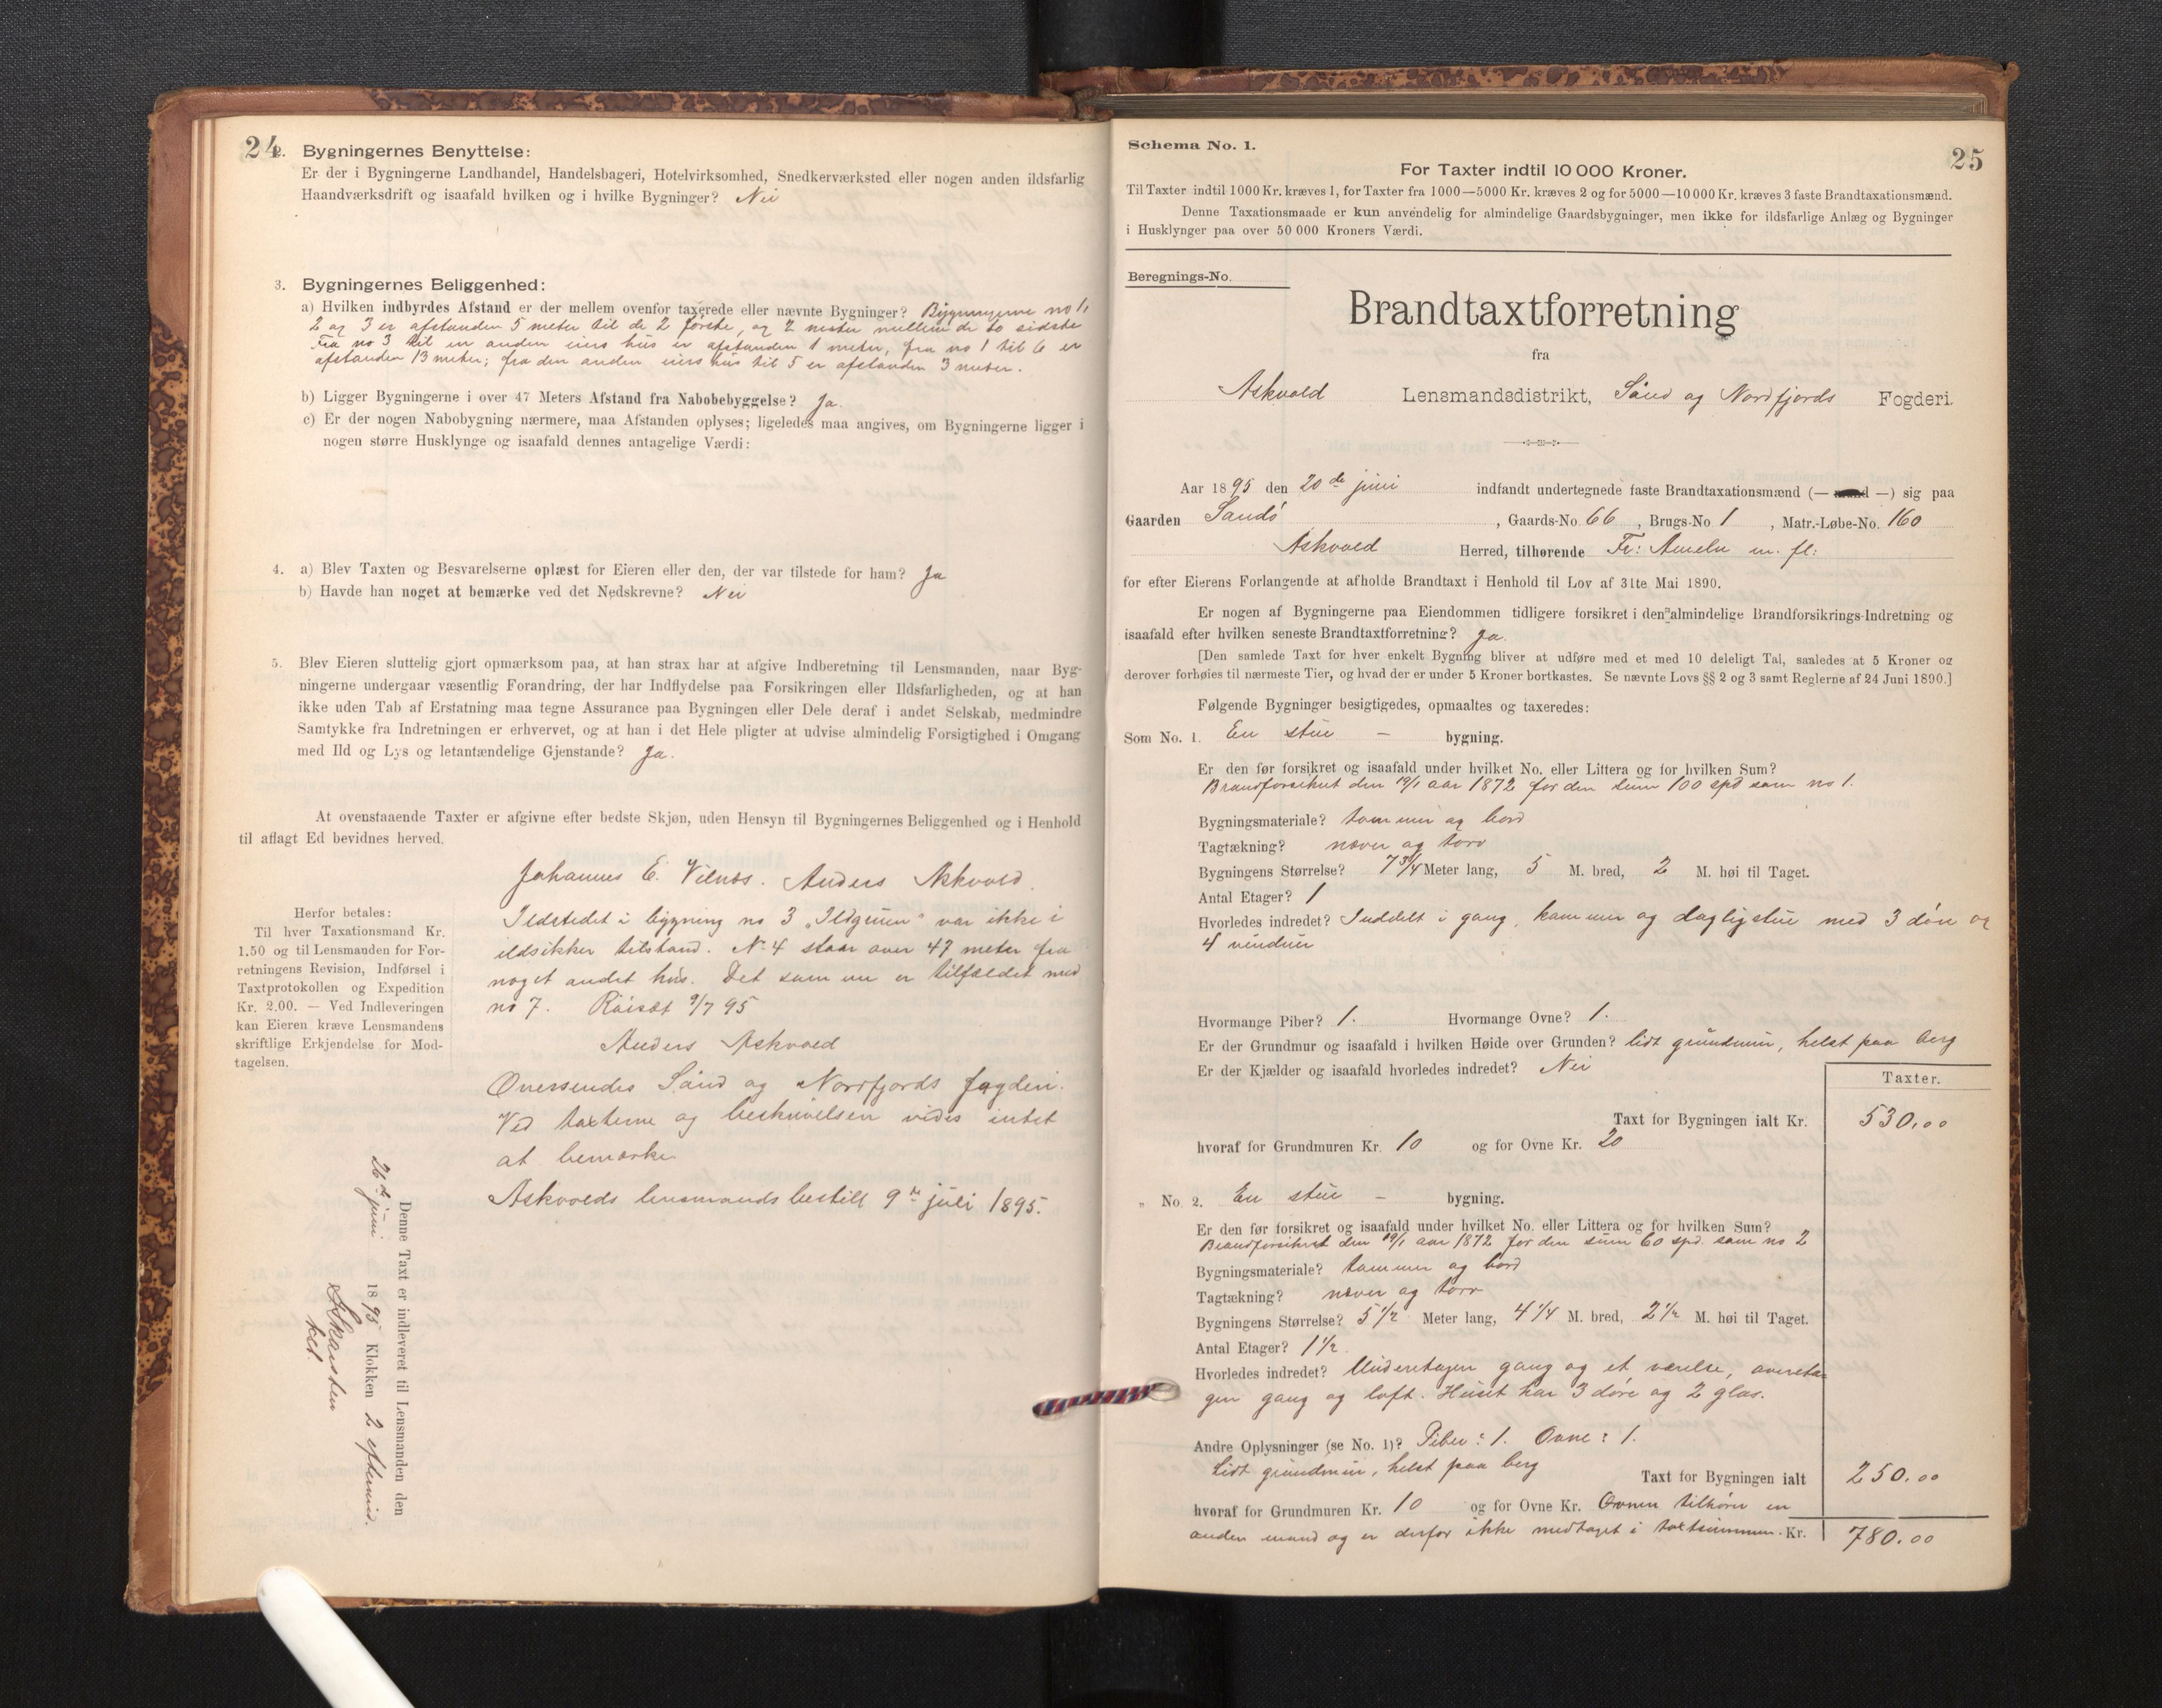 24
2. Bygningernes Benyttelse:
Er der i Bygningerne Landhandel, Handelsbageri, Hotelvirksomhed, Snedkerværksted eller nogen anden ildsfarlig
Haandværksdrift og isaafald hvilken og i hvilke Bygninger? Nei
3. Bygningernes Beliggenhed:
a) Hvilken indbyrdes Afstand er der mellem ovenfor taxerede eller nævnte Bygninger? Bygningerne no 1,
2 og 3 er afstanden 5 meter til de 2 første, og 2 meter mellem de to sidste
Fra no 3 til en anden eiers hus er afstanden 1 meter, fra no 1 til 6 er
afstanden 13 meter; fra den anden eiers hus til 5 er afstanden 3 meter.
b) Ligger Bygningerne i over 47 Meters Afstand fra Nabobebyggelse? Ja.
c) Er der nogen Nabobygning nærmere, maa Afstanden oplyses; ligeledes maa angives, om Bygningerne ligger i
nogen større Husklynge og isaafald dennes antagelige Værdi:
4. a) Blev Taxten og Besvarelserne oplæst for Eieren eller den, der var tilstede for ham? Ja
b) Havde han noget at bemærke ved det Nedskrevne? Nei
5. Blev Eieren sluttelig gjort opmærksom paa, at han strax har at afgive Indberetning til Lensmanden, naar Byg-
ningerne undergaar væsentlig Forandring, der har Indflydelse paa Forsikringen eller Ildsfarligheden, og at han
ikke uden Tab af Erstatning maa tegne Assurance paa Bygningen eller Dele deraf i andet Selskab, medmindre
Samtykke fra Indretningen er erhvervet, og at han i det Hele pligter at udvise almindelig Forsigtighed i Omgang
med Ild og Lys og letantændelige Gjenstande? Ja.
At ovenstaaende Taxter er afgivne efter bedste Skjøn, uden Hensyn til Bygningernes Beliggenhed og i Henhold
til aflagt Ed bevidnes herved.
Johannes E. Vilnes. Anders Askvold.
Ildstedet i bygning no 3 "Ildgruen" var ikke i
ildsikker tilstand. No 4 staar over 47 meter fra
noget andet hus. Det samme er tilfældet med
no 7. 9/7 95
Anders Askvold
Oversendes Sønd og Nordfjords fogderi.
Ved taxterne og beskrivelsen vides intet
at bemærke
Askvolds lensmandsbestill 9de juli 1895.
Herfor betales:
Til hver Taxationsmand Kr.
1.50 og til Lensmanden for For-
retningens Revision, Indførsel i
Taxtprotokollen og Expedition
Kr. 2.00. — Ved Indleveringen
kan Eieren kræve Lensmandens
skriftlige Erkjendelse for Mod-
tagelsen.
Denne Taxt er indleveret til Lensmanden den
26de juni 1895 Klokken 2 eftermid.
25
Schema No. 1.
For Taxter indtil 10 000 Kroner.
Til Taxter indtil 1000 Kr. kræves 1, for Taxter fra 1000—5000 Kr. kræves 2 og for 5000—10 000 Kr. kræves 3 faste Brandtaxationsmænd.
Denne Taxationsmaade er kun anvendelig for almindelige Gaardsbygninger, men ikke for ildsfarlige Anlæg og Bygninger
i Husklynger paa over 50 000 Kroners Værdi.
Beregnings-No.
Brandtaxtforretning
fra
Askvold Lensmandsdistrikt, Sønd og Nordfjords Fogderi.
Aar 1895 den 20de juni indfandt undertegnede faste Brandtaxationsmænd (— mand —) sig paa
Gaarden Sandø, Gaards-No 66, Brugs-No 1, Matr.-Løbe-No. 160
Askvold Herred, tilhørende Fr: m. fl:
for efter Eierens Forlangende at afholde Brandtaxt i Henhold til Lov af 31te Mai 1890.
Er nogen af Bygningerne paa Eiendommen tidligere forsikret i den almindelige Brandforsikrings-Indretning og
isaafald efter hvilken seneste Brandtaxtforretning? Ja.
[Den samlede Taxt for hver enkelt Bygning bliver at udføre med et med 10 deleligt Tal, saaledes at 5 Kroner og
derover forhøies til nærmeste Tier, og hvad der er under 5 Kroner bortkastes. Se nævnte Lovs §§ 2 og 3 samt Reglerne af 24 Juni 1890.]
Følgende Bygninger besigtigedes, opmaaltes og taxeredes:
Som No. 1. En stue — bygning.
Er den før forsikret og isaafald under hvilket No. eller Littera og for hvilken Sum?
Brandforsikret den 19/1 aar 1872 for den sum 100 spd som no 1.
Bygningsmateriale? tømmer og bord
Tagtækning? næver og torv
Bygningens Størrelse? 7 3/4 Meter lang, 5 M. bred, 2 M. høi til Taget.
Antal Etager? 1
Hvorledes indredet? Inddelt i gang, kammer og dagligstue med 3 døre og
4 vinduer
Hvormange Piber? 1. Hvormange Ovne? 1.
Er der Grundmur og isaafald i hvilken Høide over Grunden? lidt grundmur, helst paa berg
Er der Kjælder og isaafald hvorledes indredet? Nei
Taxter.
Taxt for Bygningen ialt Kr. 530,00
hvoraf for Grundmuren Kr. 10 og for Ovne Kr. 20
" No. 2. En stue — bygning.
Er den før forsikret og isaafald under hvilket No. eller Littera og for hvilken Sum?
Brandforsikret den 19/1 aar 1872 for den sum 60 spd. som no 2
Bygningsmateriale? tømmer og bord
Tagtækning? næver og torv
Bygningens Størrelse? 5 1/2 Meter lang, 4 1/4 M. bred, 2 1/2 M. høi til Taget.
Antal Etager? 1 1/2
Hvorledes indredet? Underetagen gang og et værelse, overeta-
gen gang og loft. Huset har 3 døre og 2 glas.
Andre Oplysninger (se No. 1)? Piber: 1. Ovne: 1.
Lidt grundmur, helst paa berg Taxt for Bygningen ialt 250.00
hvoraf for Grundmuren Kr. 10 og for Ovne Kr. Ovnen tilhører en
anden mand og er derfor ikke medtaget i taxtsummen. Kr. 780.00